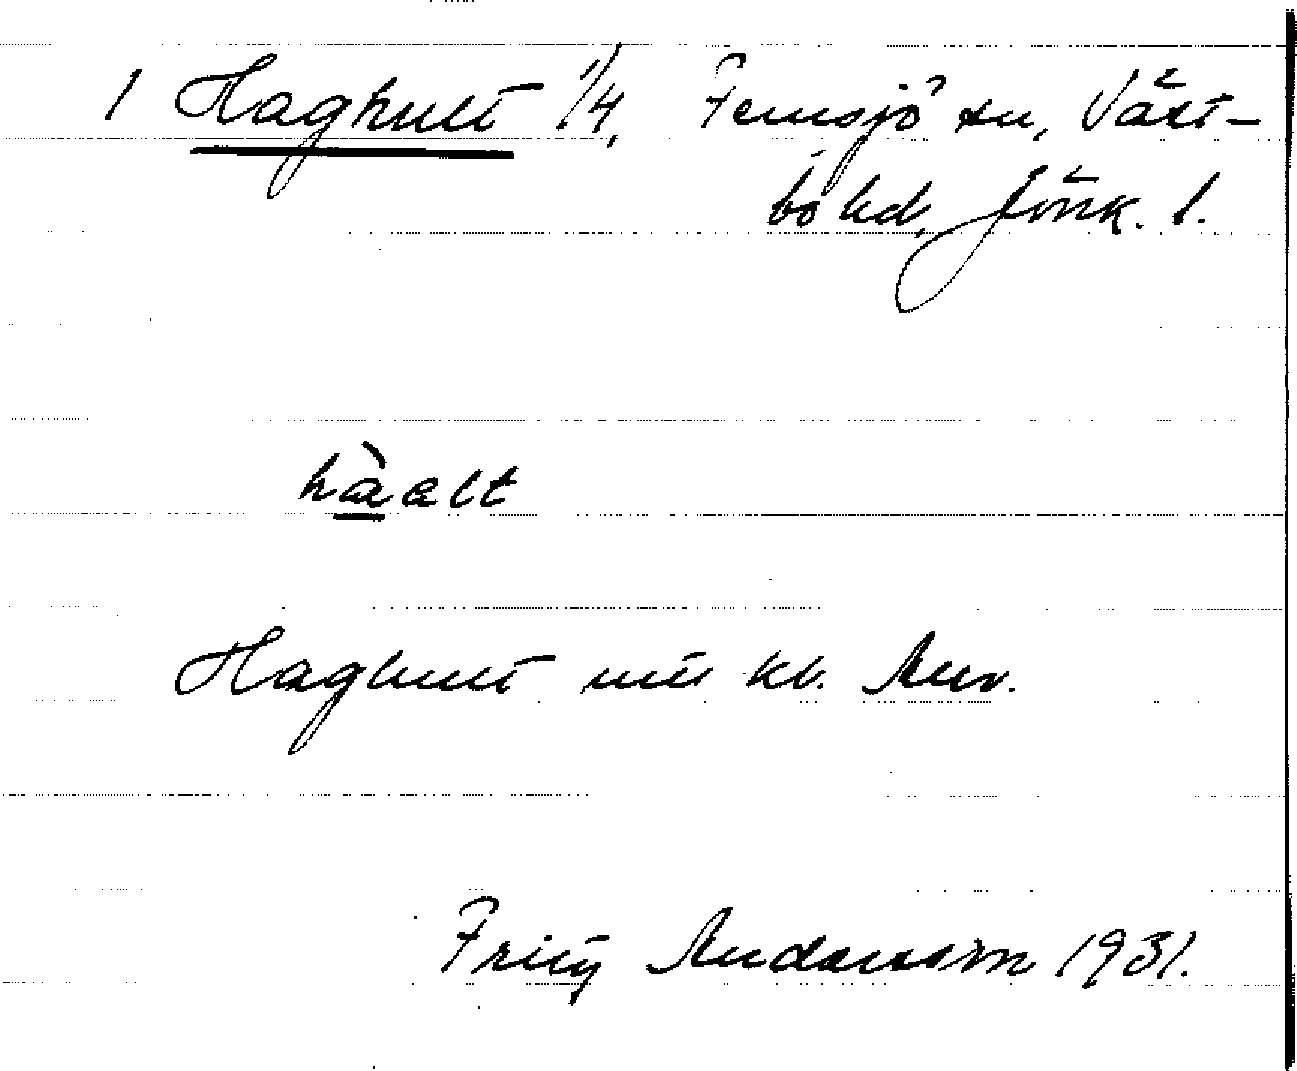 1 Haghult 1/4, Femsjö sn, Väst-
bo hd, Jönk. l.
hàalt
Haghult kb.
Fritz Andersson 1931.